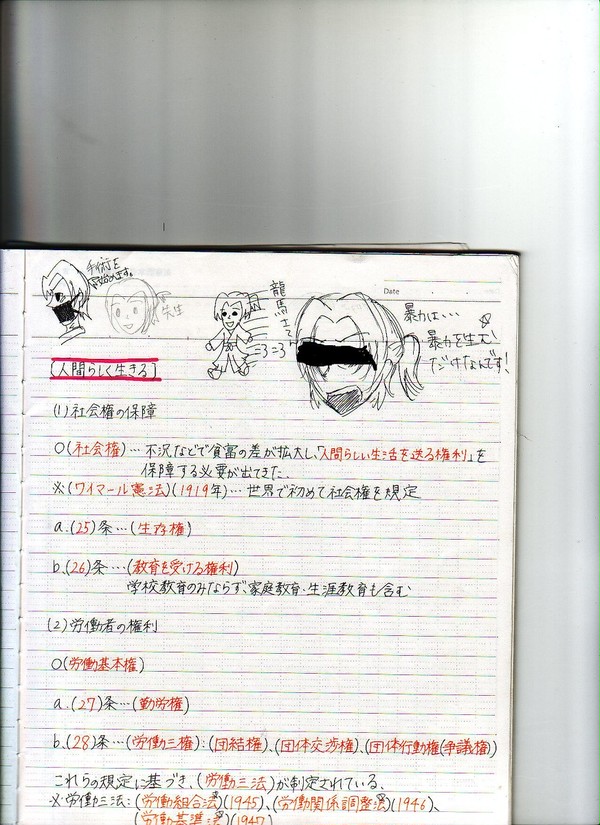 手術を
開始します。
先生
龍馬さて
Date
暴力は…
暴力を生む
だけなんです!
[人間らしく生きる]
(1)社会権の保障
○(社会権)…不況などで貧富の差が拡大し、「人間らしい生活を送る権利」を
保障する必要が出てきた。
※(ワイマール憲法)(1919年)…世界で初めて社会権を規定
a.(25)条…(生存権)
b.(26)条…(教育を受ける権利)
学校教育のみならず、家庭教育・生涯教育も含む
(2)労働者の権利
○(労働基本権)
a.(27)条…(勤労権)
b.(28)条…(労働三権):(団結権)、(団体交渉権)、(団体行動権(争議権))
これらの規定に基づき、(労働三法)が制定されている。
※労働三法:(労働組合法)(1945)、(労働関係調整法)(1946)、
(労働基準法)(1947)